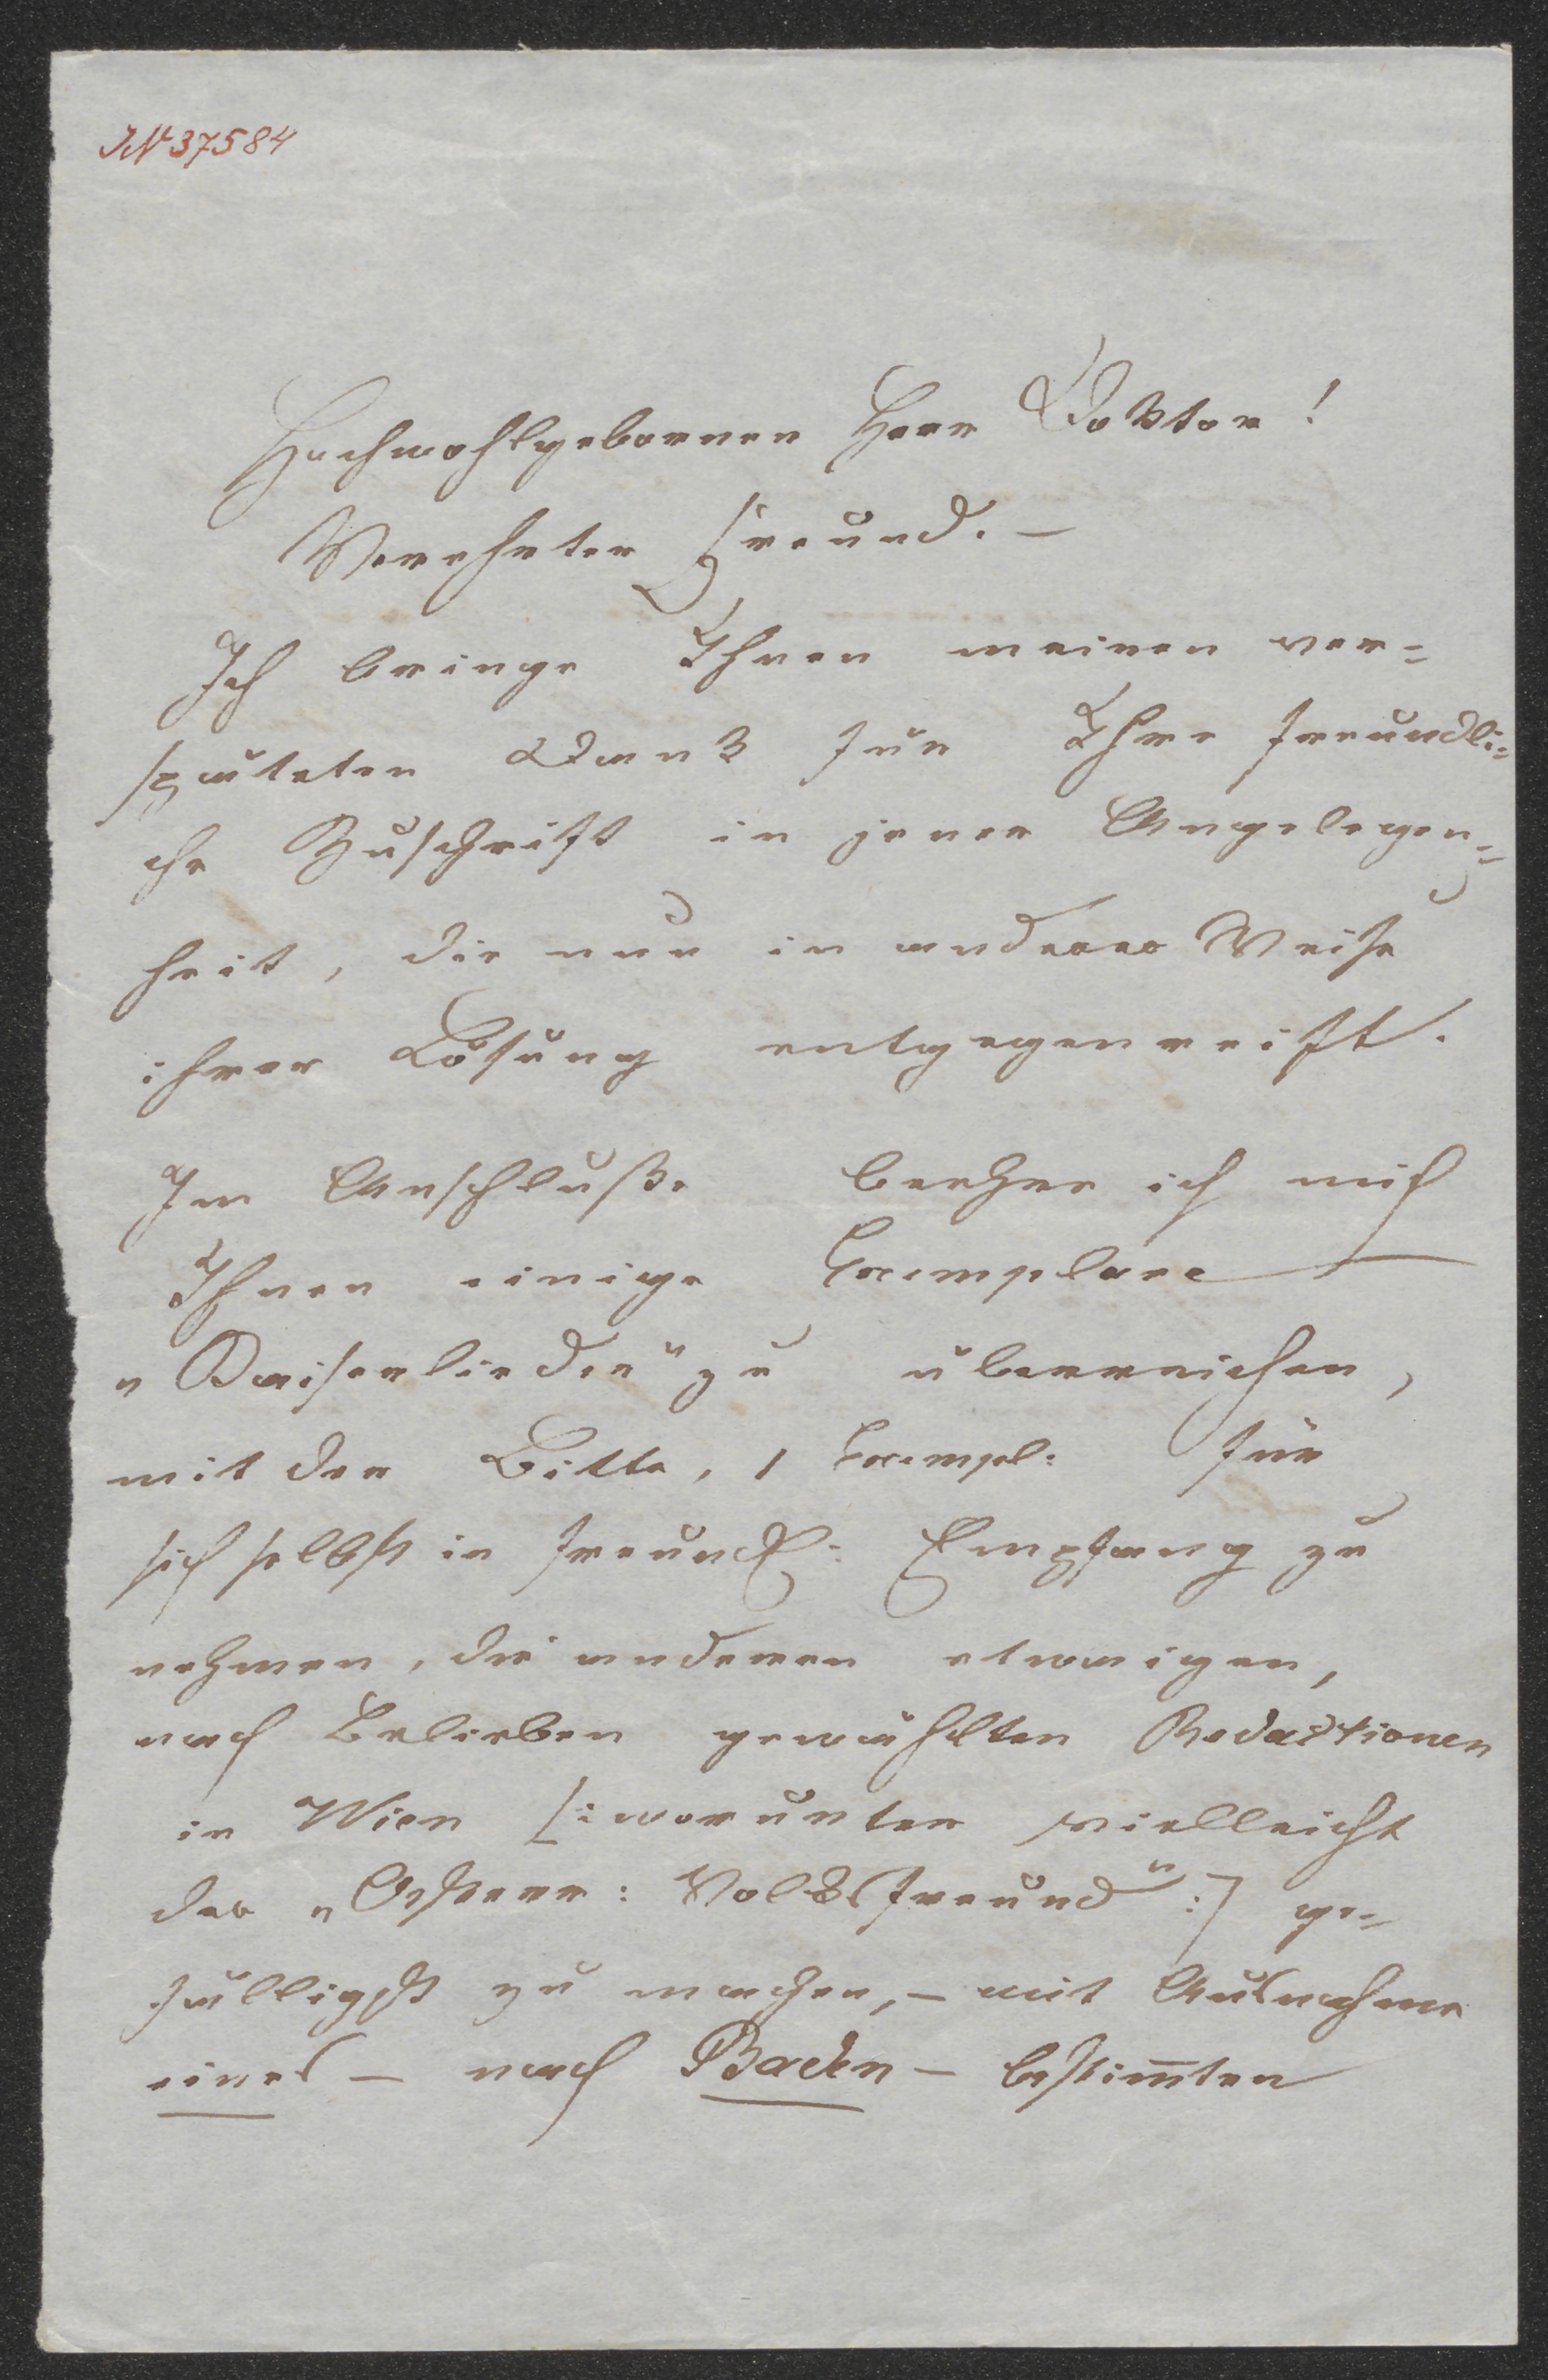 IN 37584
Hochwohlgeborner Herr Doktor!
Verehrter Freund. –
Ich bringe Ihnen meinen ver=
späteten Dank für Ihre freundli=
che Zuschrift in jener Angelegen=
heit, die nun in anderer Weise
ihrer Lösung entgegenreift.
Im Anschluße beehre ich mich
Ihnen einige Exemplare
„Kaiserlieder" zu überreichen,
mit der Bitte, 1 Exempl: für
sich selbst in freundl: Empfang zu
nehmen, die anderen etwaigen,
nach Belieben gewählten Redactionen
in Wien [: worunter vielleicht
der „Österr: Volksfreund" :] ge=
fälligst zu machen, – mit Ausnahme
eines – nach Baden – bestim̅ten